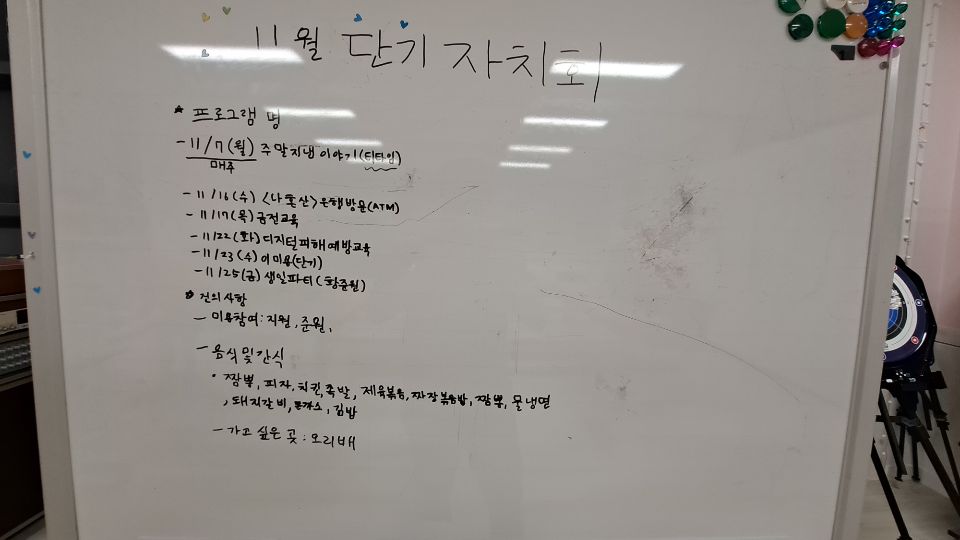 11월 단기 자치회
* 프로그램 명
- 11/7(월) 주말지낸이야기(티타임)
매주
- 11/16(수) <나눔산> 은행방문(ATM)
- 11/17(목) 금전교육
- 11/22(화) 디지털피해예방교육
- 11/23(수) 이미용(단기)
- 11/25(금) 생일파티(황준월)
* 건의사항
- 미용참여 : 지월, 준월,
- 음식 및 간식
· 짬뽕, 피자, 치킨, 족발, 제육볶음, 짜장볶음밥, 짬뽕, 물냉면
, 돼지갈비, 돈까스, 김밥
- 가고 싶은 곳 : 오리배